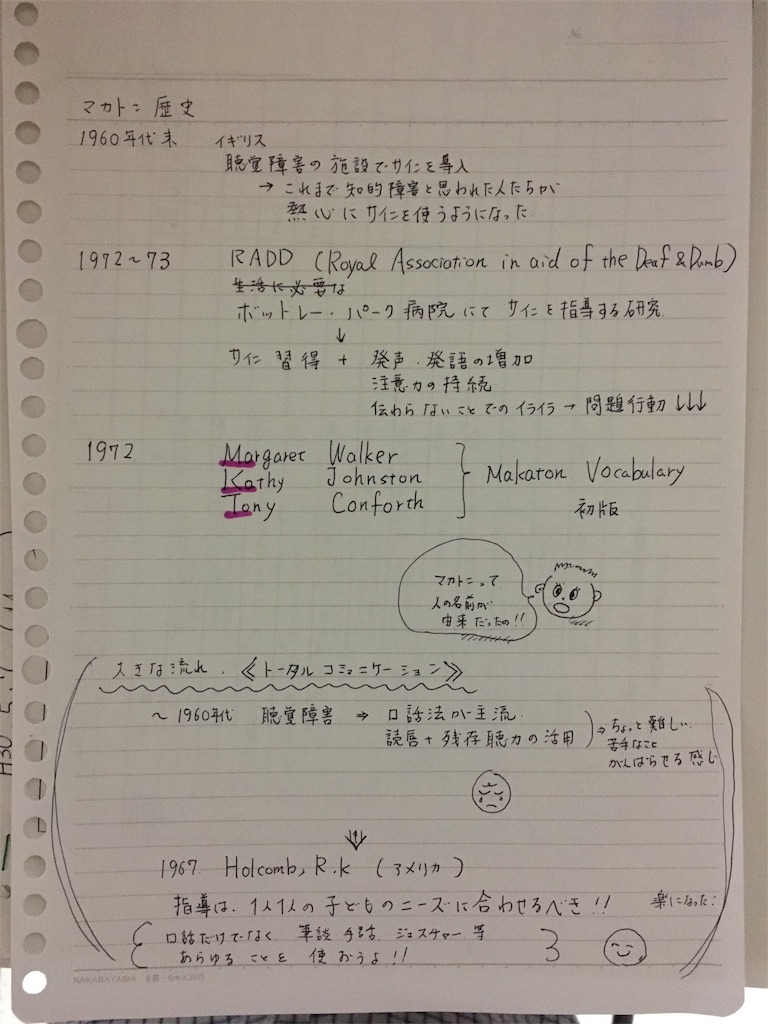 No.
マカトン 歴史
1960年代末 イギリス
聴覚障害の施設でサインを導入
→ これまで知的障害と思われた人たちが
熱心にサインを使うようになった
1972〜73 RADD (Royal Association in aid of the Deaf & Dumb)
生活に必要な
ボットレー・パーク病院にて サインを指導する研究
↓
サイン習得 + 発声・発語の増加
注意力の持続
伝わらないことでのイライラ → 問題行動 ↓↓↓
1972 Margaret Walker
Kathy Johnston } Makaton Vocabulary
Tony Conforth 初版
マカトンって
人の名前が
由来だったの!!
大きな流れ. 《トータルコミュニケーション》
〜1960年代 聴覚障害 ⇒ 口話法が主流.
読唇+残存聴力の活用
⇒ ちょっと難しい.
苦手なこと
がんばらせる感じ
1967. Holcomb, R.K (アメリカ)
指導は、1人1人の子どものニーズに合わせるべき!!
楽になった!
口話だけでなく 筆談 手話 ジェスチャー 等
あらゆることを 使おうよ!!
NAKABAYASHI